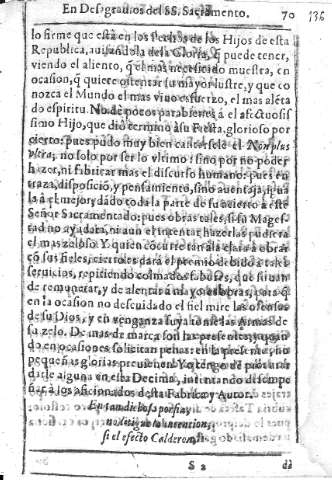 En Desagravios del SS. Sacramento. 70 136
lo firme que està en los pechos de los Hijos de esta
Republica, ausandola de la Gloria, q̃ puede tener,
viendo el aliento, q̃ el mas necesitado muestra, en
ocasion, q̃ quiere ostentar su mayor lustre, y que co
nozca el Mundo el mas vivo esfuerzo, el mas alẽta
do espiritu. No dè pocos parabienes à el afectuosis
simo Hijo, que diò termino à su Fiesta. glorioso por
cierto: pues pudo muy bien cantarsele el Non plus
vltra; no solo por ser lo vltimo: sino por no poder
hazer, ni fabricar mas el discurso humano: pues en
traza, disposiciõ, y pensamiento, sino aventaja, igua
la à el mejor, dãdo toda la parte de su acierto à este
Señor Sacramentado: pues obras tales, si su Mages-
tad no ayudara, ni aun el intentar hazerlas pudiera
el mas zeloso. Y quien cõ
sus fieles, ciertos es para el premio debido à tales
servicios, repitiendo colmados
de remunerar, y de alentar à mayores obras, para q̃
en la ocasion no descuidado el fiel mire las ofensas
de su Dios, y en venganza suya tome las Armas de
su zelo. De mas de marca son las presentes, y quan
do en ocasiones solicitan penas: en la presente, no
pequeñas glorias previenen. Yo tengo de
darle alguna en esta Decima, intentando disempe
ñar à los aficionados desta Fabrica y Autor.
En tan dichosa porfia,
no desigue tu intencion,
si el efecto Calderon,
S 2 dà